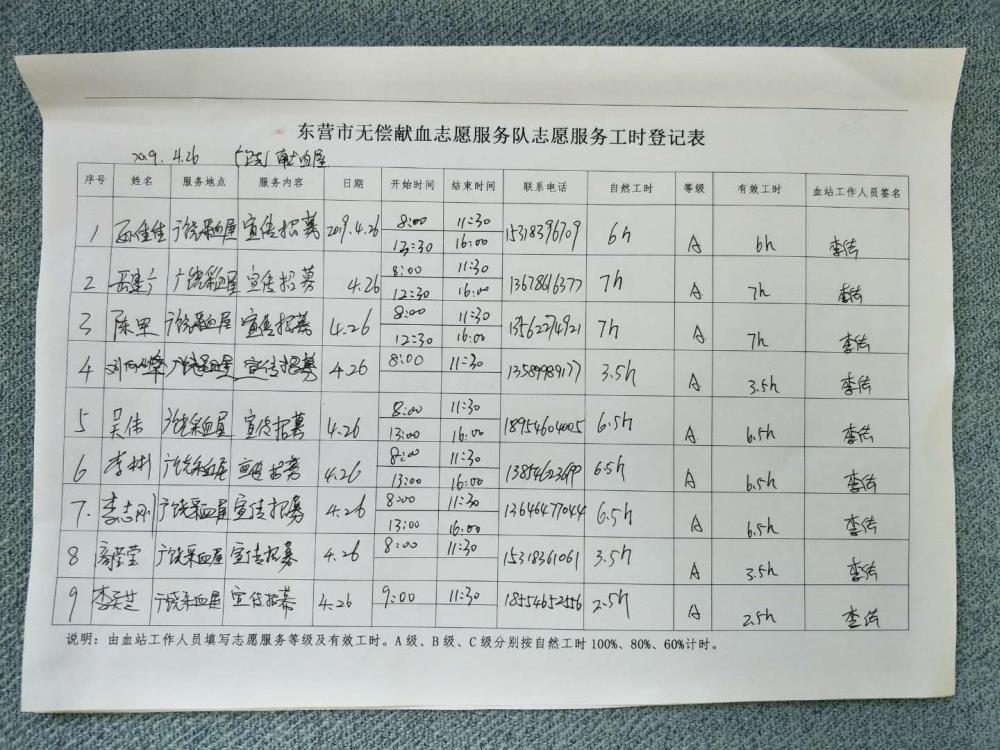 东营市无偿献血志愿服务队志愿服务工时登记表
2019.4.26 广饶献血屋
序号 姓名 服务地点 服务内容 日期 开始时间 结束时间 联系电话 自然工时 等级 有效工时 血站工作人员签名
1 佳佳 广饶采血屋 宣传招募 2019.4.26 8:00 11:30 15318396709 6h A 6h 李
13:30 16:00
2 广饶采血屋 宣传招募 4.26 8:00 11:30 13678616377 7h A 7h 李
12:30 16:00
3 陈 广饶采血屋 宣传招募 4.26 8:00 11:30 13562274921 7h A 7h 李
12:30 16:00
4 刘 广饶采血屋 宣传招募 4.26 8:00 11:30 13589989177 3.5h A 3.5h 李
5 吴伟 广饶采血屋 宣传招募 4.26 8:00 11:30 18954604005 6.5h A 6.5h 李
13:00 16:00
6 李彬 广饶采血屋 宣传招募 4.26 8:00 11:30 6.5h A 6.5h 李
13:00 16:00
7. 李志刚 广饶采血屋 宣传招募 4.26 8:00 11:30 13646477044 6.5h A 6.5h 李
13:00 16:00
8 广饶采血屋 宣传招募 4.26 8:00 11:30 15318361061 3.5h A 3.5h 李
9 李 广饶采血屋 宣传招募 4.26 9:00 11:30 18554652556 2.5h A 2.5h 李
说明：由血站工作人员填写志愿服务等级及有效工时。A级、B级、C级分别按自然工时100%、80%、60%计时。